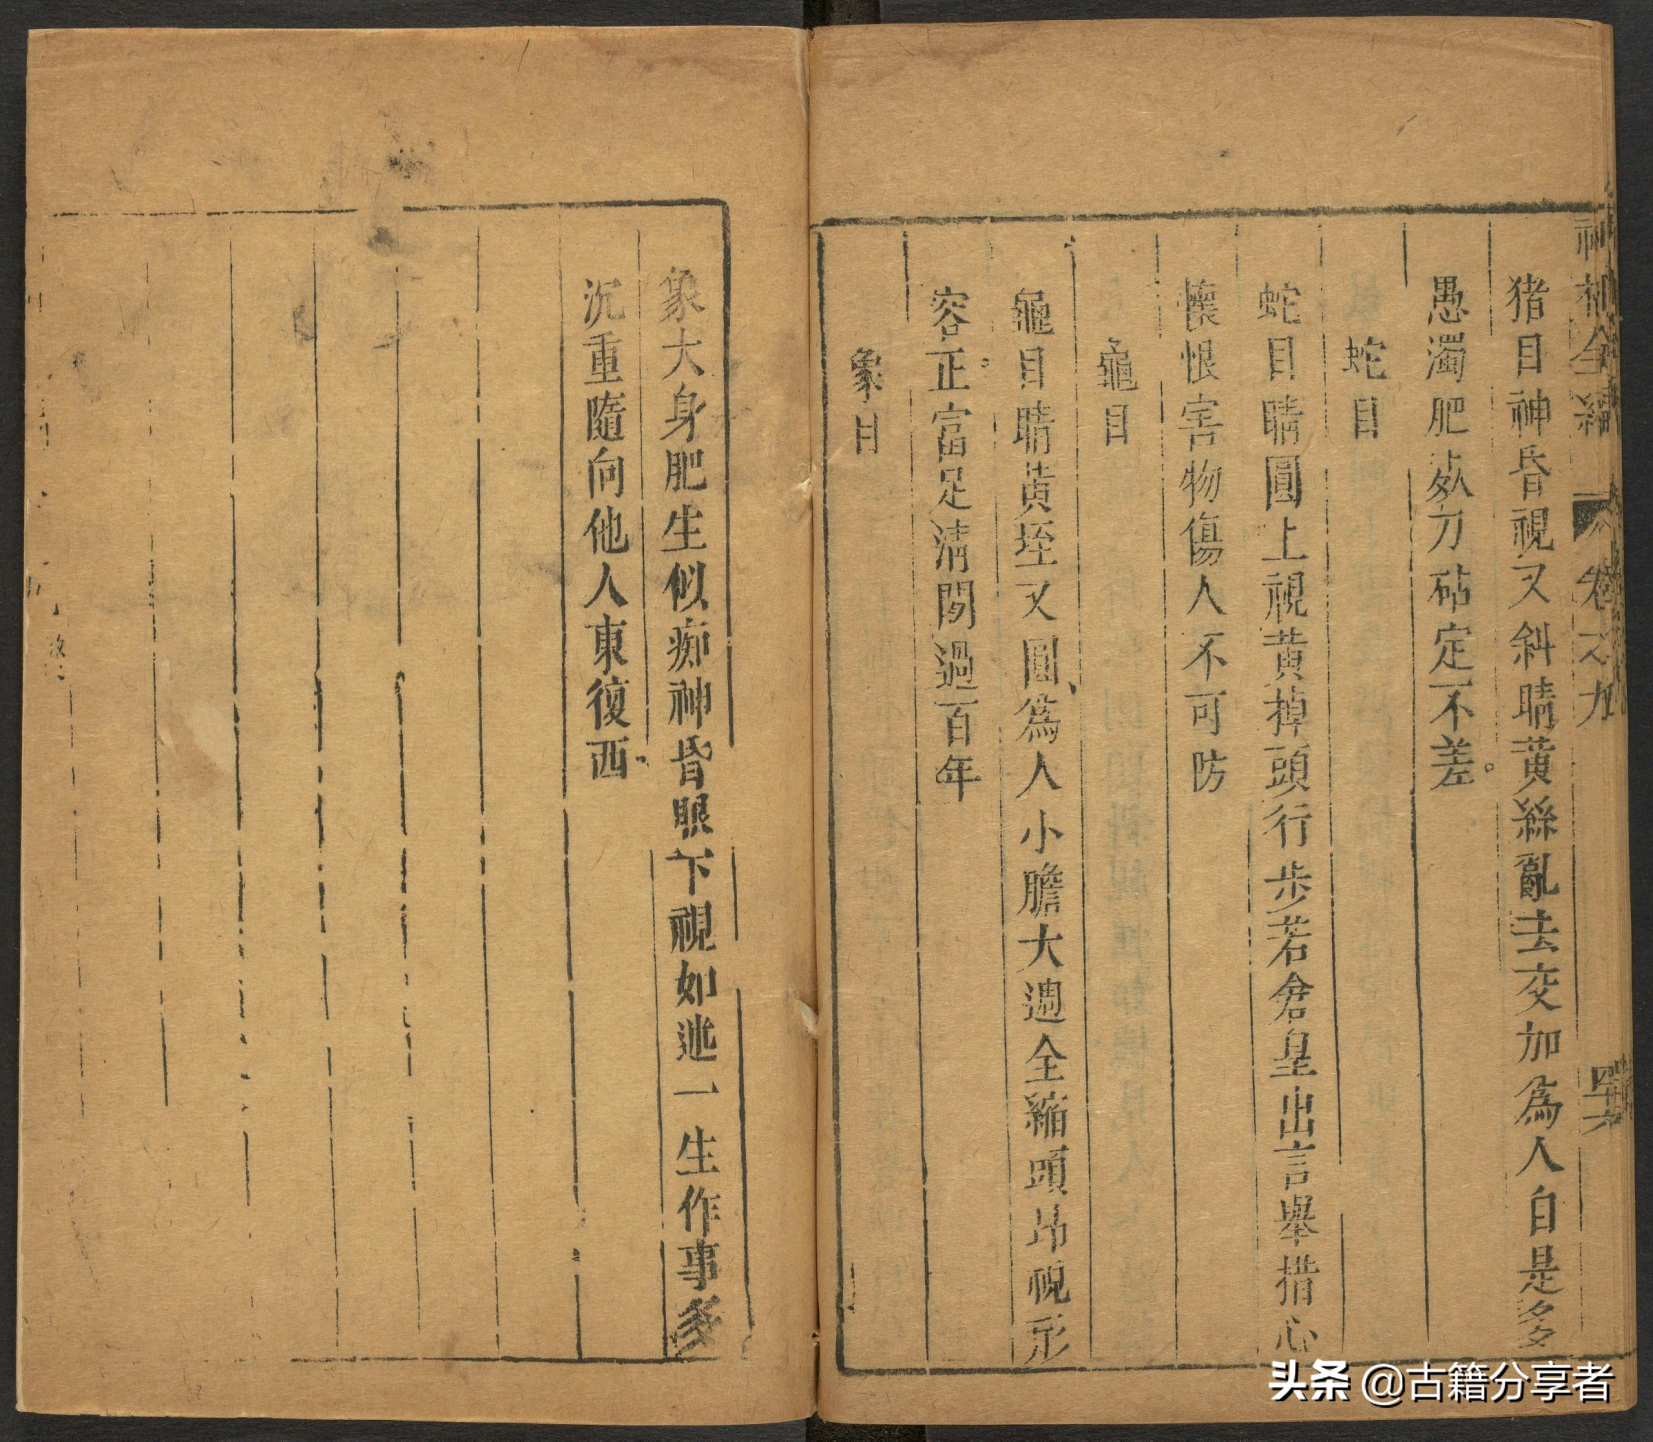 神相全編 卷之九 四十六
猪目神昏視又斜睛黄絲亂去交加為人自是多
愚濁肥死刀砧定不差
蛇目
蛇目睛圓上視黄掉頭行步若倉皇出言舉措心
懷恨害物傷人不可防
龜目
龜目睛黄 又圓為人小膽大週全縮頭昂視形
容正富足清閒過百年
象目
象大身肥生似痴神昏眼下視如迷一生作事多
沉重隨向他人東復西
头条 @古籍分享者